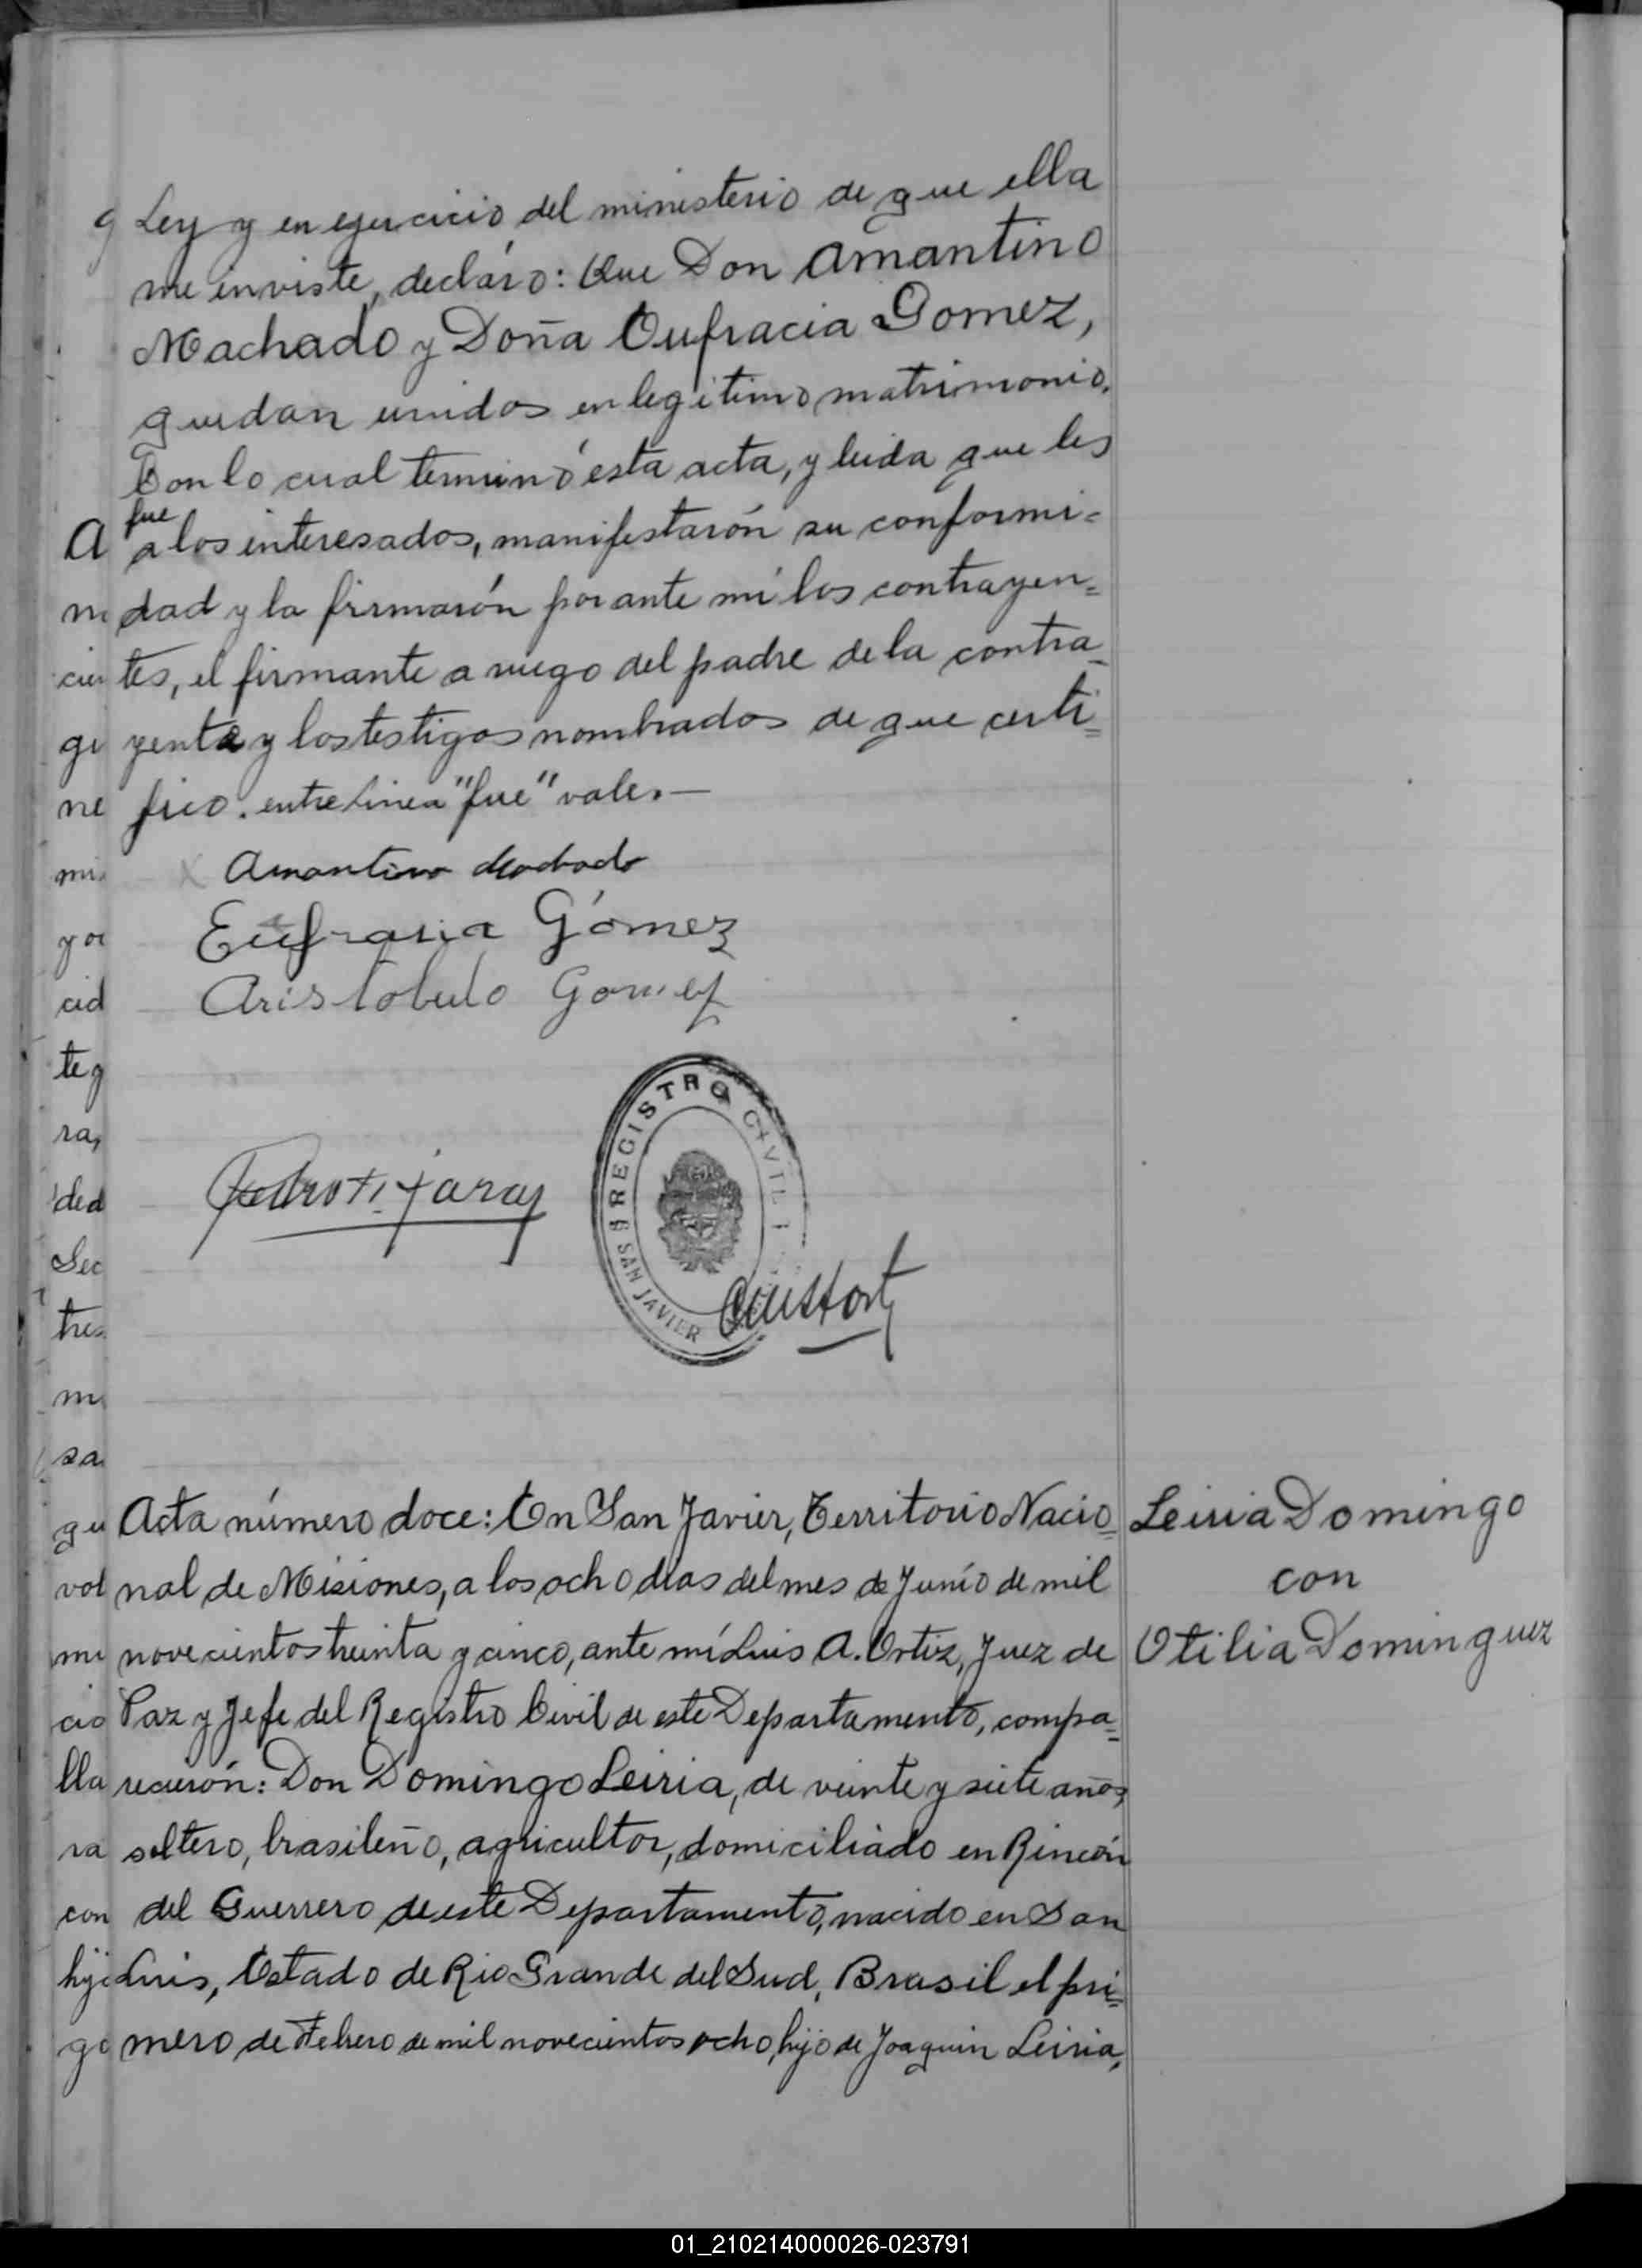 Ley y en ejercicio del ministerio de que ella
me inviste, decláro: Que Don Amantino
Machado y Doña Eufracia Gomez,
quedan unidos en legitimo matrimonio.
Con lo cual terminó esta acta, y leida que les
fue
a los interesados, manifestarón su conformi=
dad y la firmarón por ante mí los contrayen=
tes, el firmante a ruego del padre de la contra=
yente y los testigos nombrados de que certi=
fico. entre linea "fue" vale.—
Amantino Machado
Eufrasia Gómez
Aristobulo Gomez
REGISTRO CIVIL
SAN JAVIER
Acta número doce: En San Javier, Territorio Nacio=
nal de Misiones, a los ocho días del mes de Junío de mil
novecientos treinta y cinco, ante mí Luis A. Ortiz, Juez de
Paz y Jefe del Registro Civil de este Departamento, compa=
recierón: Don Domingo Leiria, de veinte y siete años,
soltero, brasileño, agricultor, domiciliádo en Rincón
del Guerrero de este Departamento, nacido en San
Luis, Estado de Rio Grande del Sud, Brasil el pri=
mero de Febrero de mil novecientos ocho, hijo de Joaquin Leiria,
Leiria Domingo
con
Otilia Dominguez
01_210214000026-023791